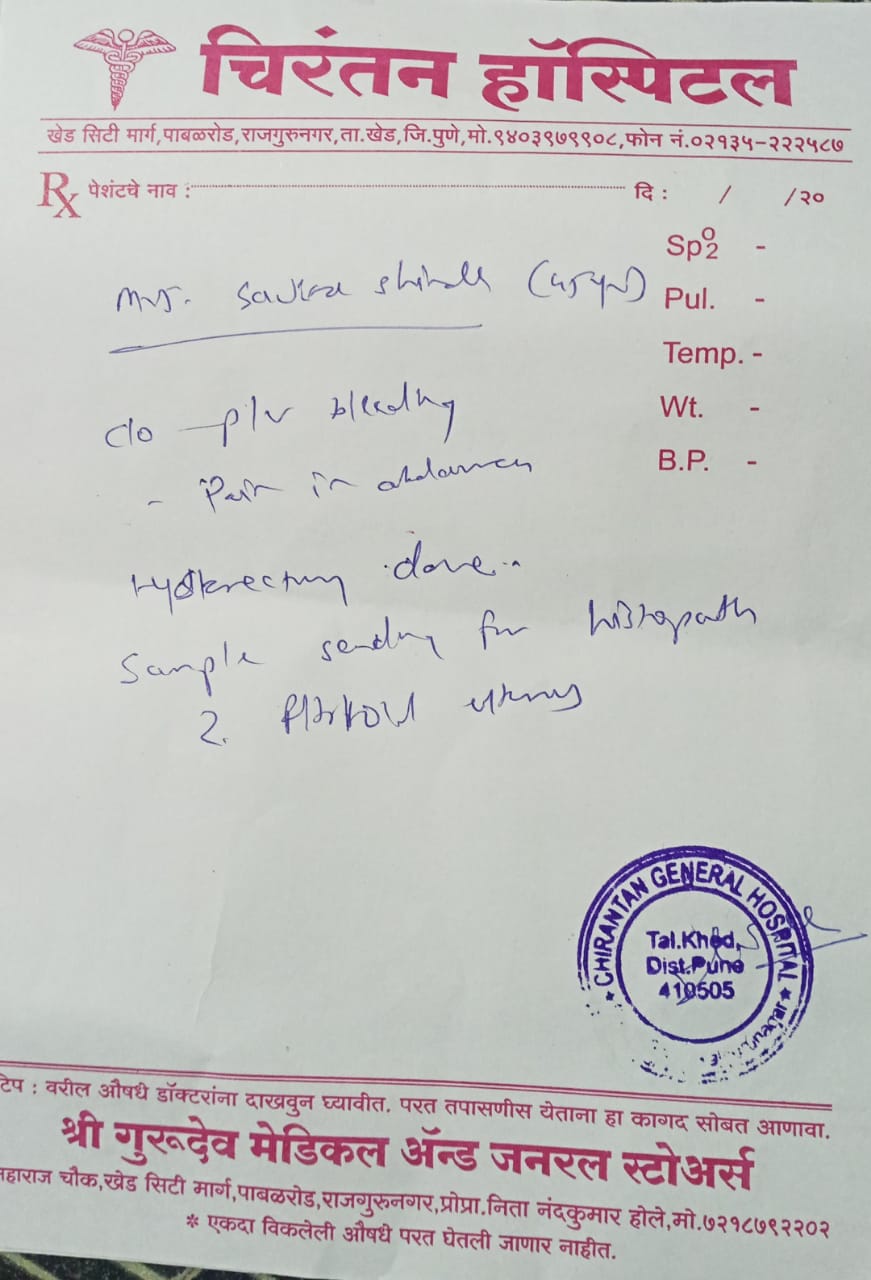 चिरंतन हॉस्पिटल
खेड सिटी मार्ग,पाबळरोड,राजगुरुनगर,ता.खेड,जि.पुणे,मो.९४०३९७९९०८,फोन नं.०२१३५-२२२५८७
Rx पेशंटचे नाव : दि : / /२०
Sp O2 -
Mrs. shinde
Pul. -
Temp. -
Wt. -
B.P. -
c/o p/v bleeding
- Pain in abdomen
done..
Sample sending for histopath
2.
CHIRANTAN GENERAL HOSPITAL
Tal.Khed,
Dist.Pune
410505
टिप : वरील औषधे डॉक्टरांना दाखवुन घ्यावीत. परत तपासणीस येताना हा कागद सोबत आणावा.
श्री गुरूदेव मेडिकल ॲन्ड जनरल स्टोअर्स
चौक,खेड सिटी मार्ग,पाबळरोड,राजगुरुनगर,प्रोप्रा.निता नंदकुमार होले,मो.७२१८७९२२०२
* एकदा विकलेली औषधे परत घेतली जाणार नाहीत.